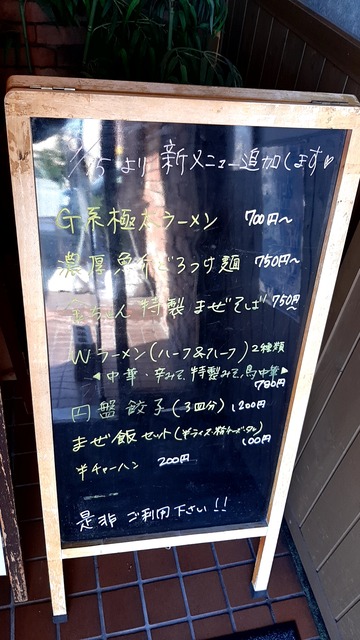 7/15より 新メニュー追加します♡
G系極太ラーメン 700円〜
濃厚魚介どろつけ麺 750円〜
金ちゃん特製まぜそば 750円〜
Wラーメン(ハーフ&ハーフ)2種類
◀中華・辛みそ、特製みそ、鳥中華▶
780円
円盤餃子(3回分) 1200円
まぜ飯セット(半ライス・粉チーズ・タレ)
100円
半チャーハン 200円
是非ご利用下さい!!